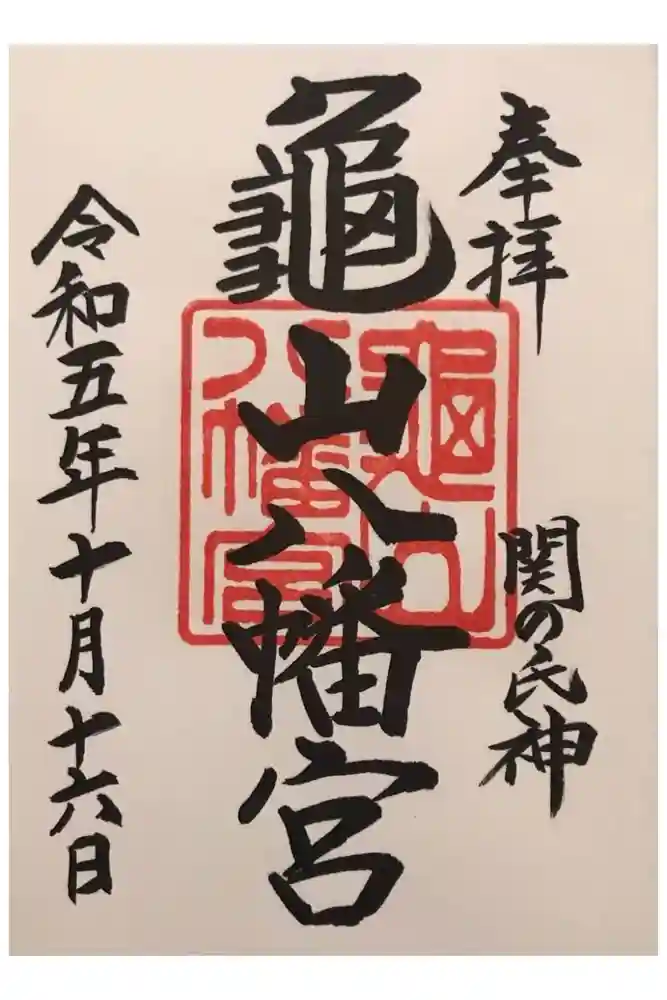 奉拝
関の氏神
龜山八幡宮
龜山
八幡宮
令和五年十月十六日